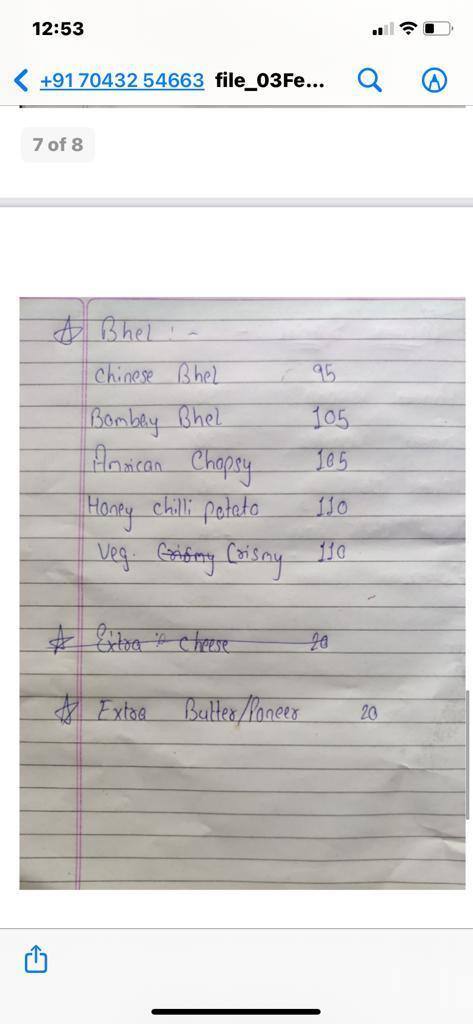 12:53
+91 70432 54663 file_03Fe...
7 of 8
Bhel :-
Chinese Bhel 95
Bombay Bhel 105
Amrican Chopsy 105
Honey chilli potato 110
Veg. Crismy Crismy 110
Extra Cheese 20
Extra Butter/Paneer 20